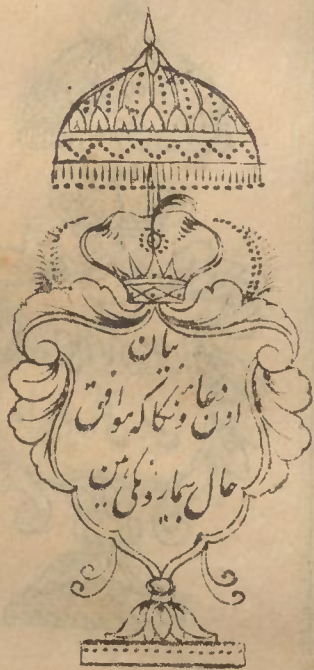 بیان
اون دعاؤنکا که موافق
حال بیمارونکی هین